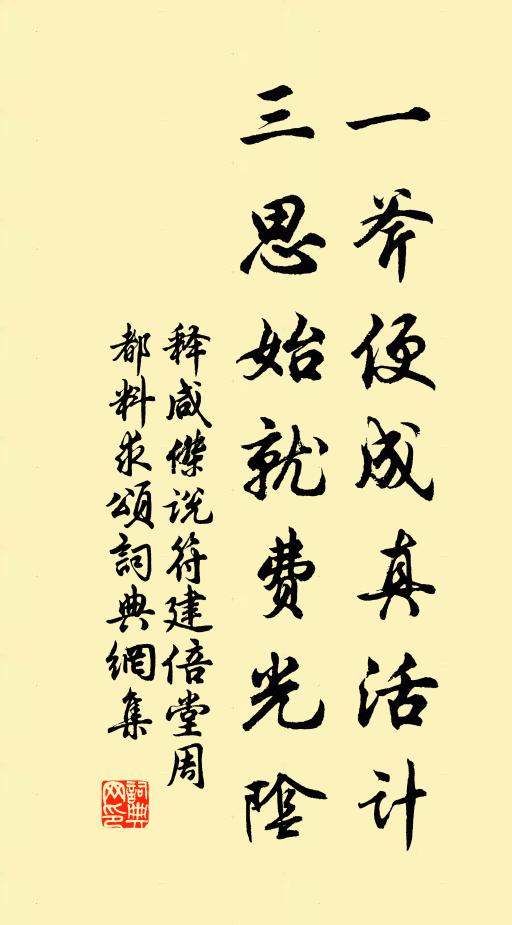 一斧便成真活计
三思始就費光陰
释咸傑说符建倍堂周
都料求頌詞典網集
詞典网印